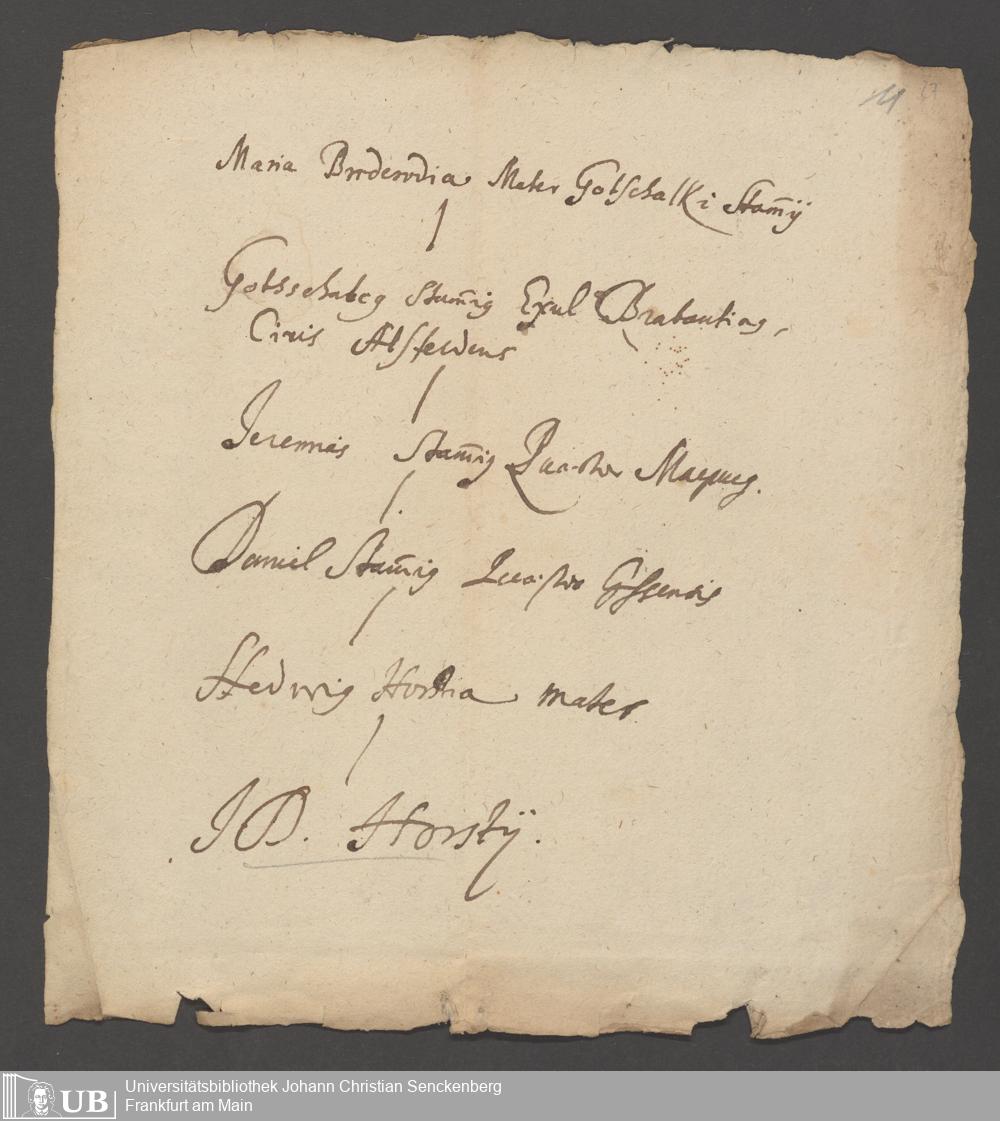 11 27
Maria Brederodia Mater Gotschalki Stam̄ij
Gottschalcg Stam̄ig Exul Brabantiae,
Civis Alsfeldens
Jeremias Stam̄ig Quaestor Marpurg.
Daniel Stam̄ig Quaestor Gissensis
Hedwig Horstia mater
J D. Horstij.
UB
Universitätsbibliothek Johann Christian Senckenberg
Frankfurt am Main